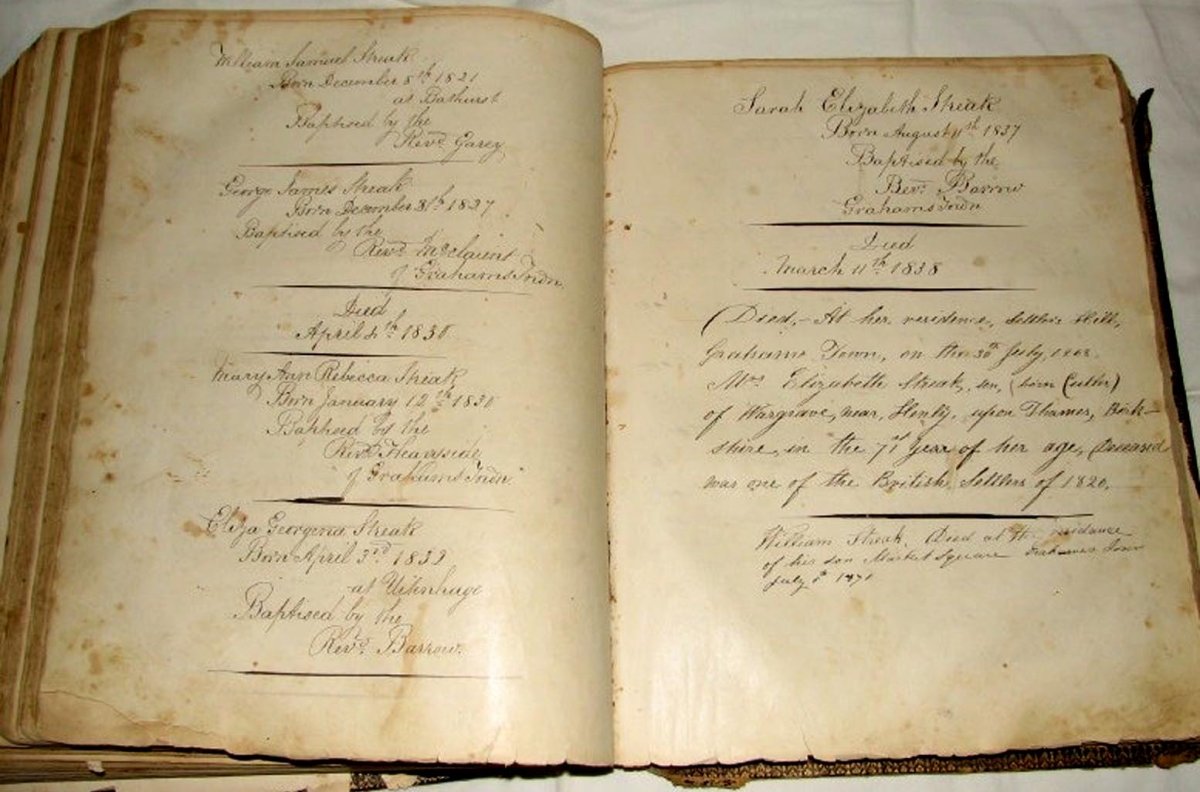 William Samuel Streak
Born December 8th 1821
at Bathurst
Baptised by the
Revd. Garey
George James Streak
Born December 8th 1827
Baptised by the
Revd.
of Grahams Town.
Died
April 1830
Mary Ann Rebecca Streak
Born January 12th 1830
Baptised by the
Revd.
of Grahams Town.
Eliza Georgena Streak
Born April 3rd
at Uitenhage
Baptised by the
Revd. Barrow.
Sarah Elizabeth Streak
Born August 11th 1837
Baptised by the
Revd. Barrow
Grahams Town
Died
March 11th 1838
(Died,-At her residence, Settlers Hill,
Grahams Town, on the 30th July,
Mrs. Elizabeth Streak, sen, (born Cutler)
of Wargrave, near, Henly, upon Thames, Berk-
shire, in the 71st year of her age, Deceased
was one of the British Settlers of 1820.
William Streak, Died at the residence
of his son Market Square Grahams Town
July